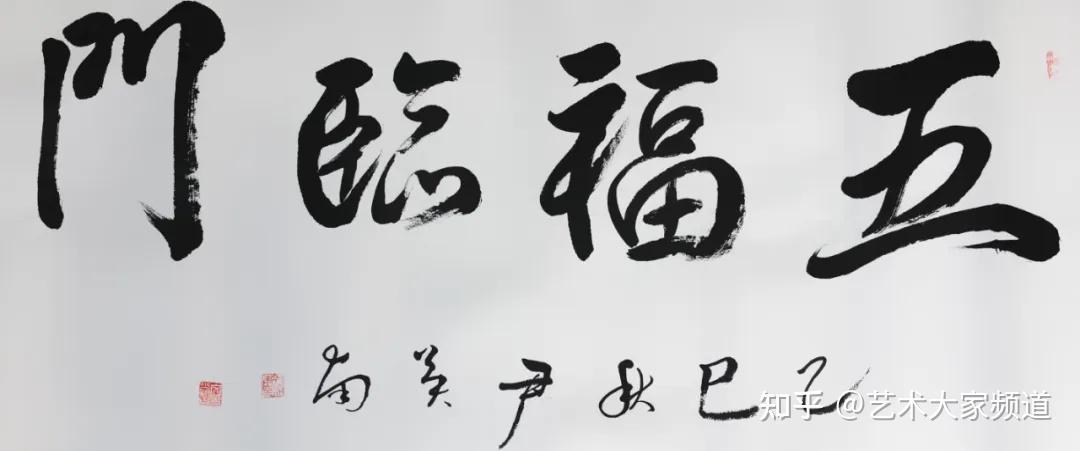 五福臨門
乙巳秋尹南
知乎 @艺术大家频道